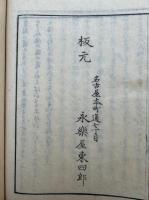 板元
名古屋本町通七丁目
永樂屋東四郎